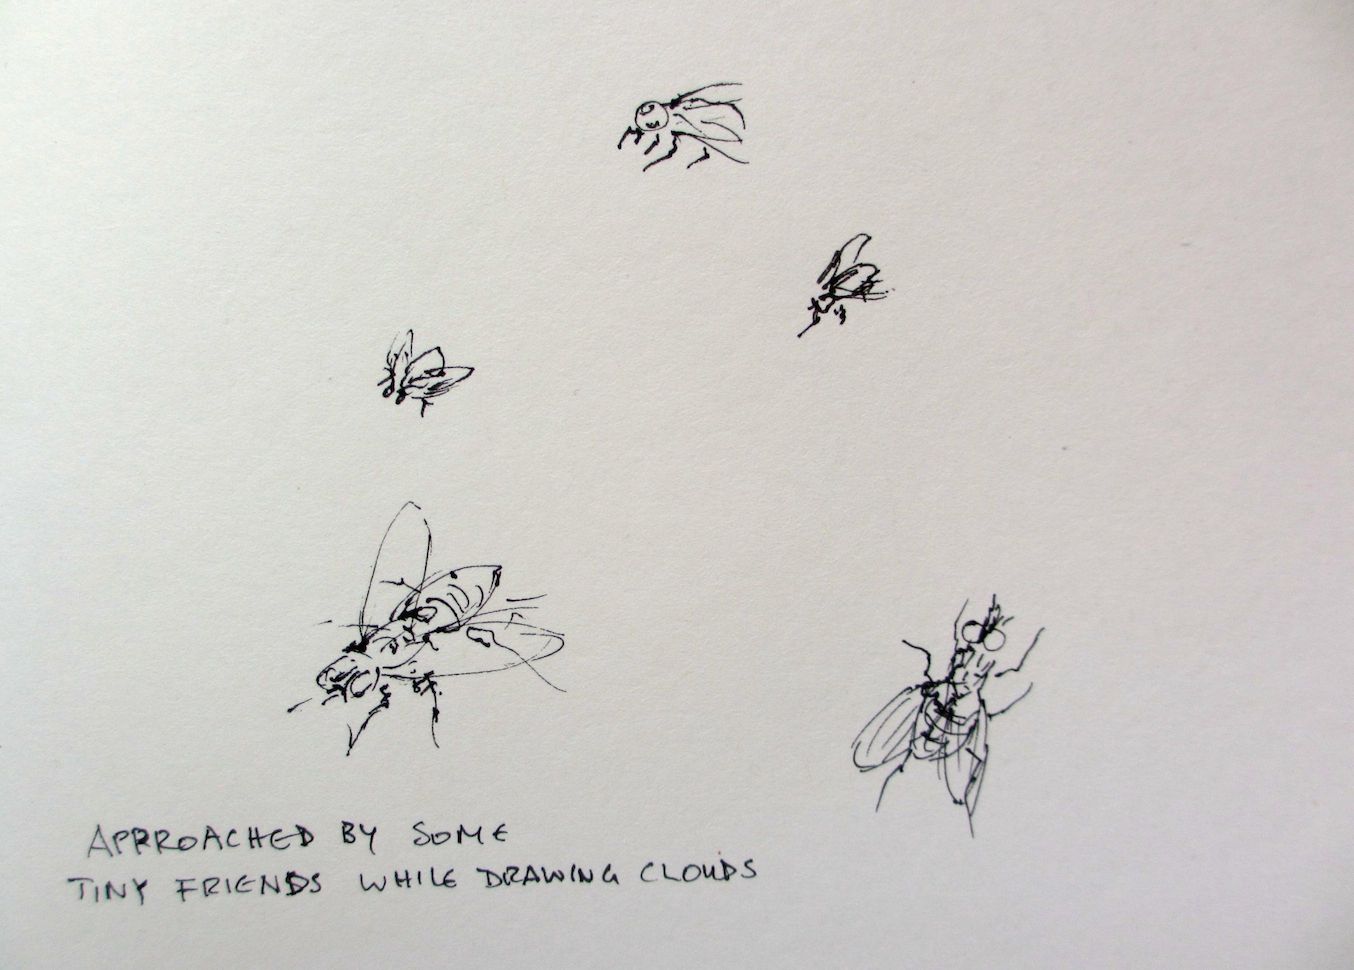 APPROACHED BY SOME
TINY FRIENDS WHILE DRAWING CLOUDS